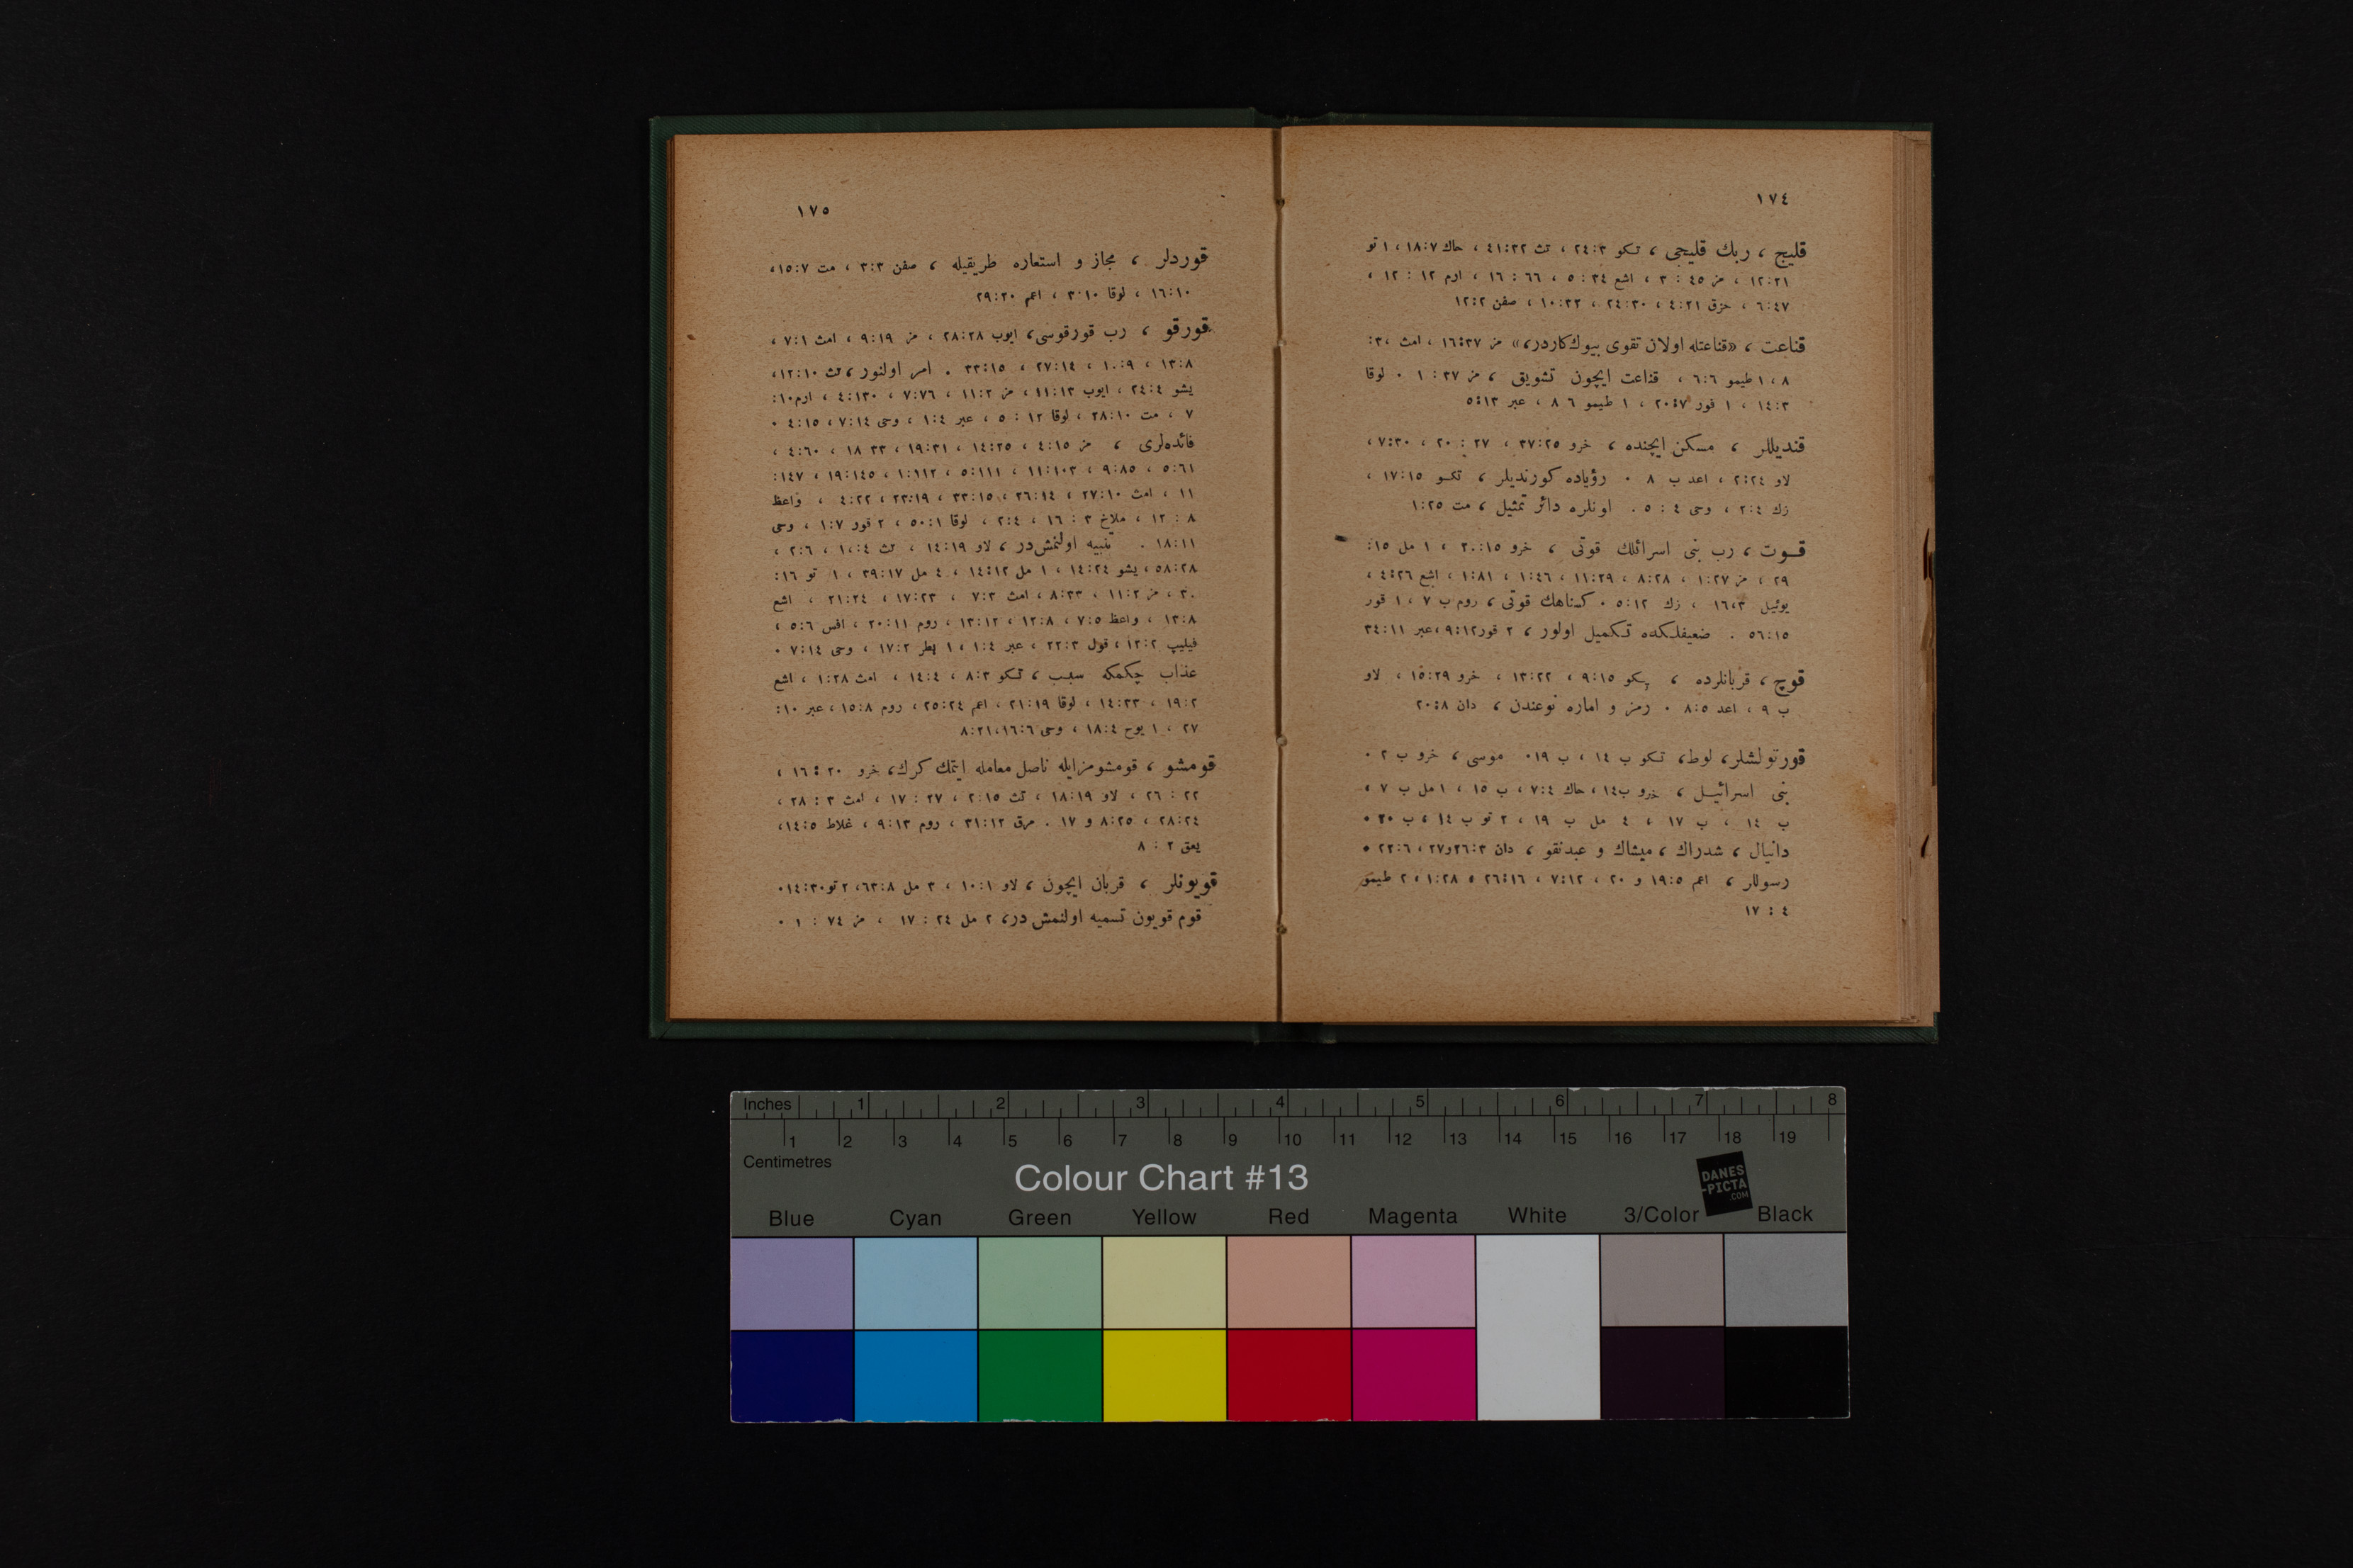 ١٧٤
قليج ، ربك قليجى ، تكو ٢٤:٣ ، تث ٤١:٣٢ ، حاك ١٨:٧ ، ١ تو
١٢:٢١ ، مز ٤٥ : ٣ ، اشع ٣٤ : ٥ ، ٦٦ : ١٦ ، ارم ١٢ : ١٢ ،
٦:٤٧ ، حزق ٤:٢١ ، ٢٤:٣٠ ، ١٠:٣٢ ، صفن ١٢:٢
قناعت ، «قناعتله اولان تقوى بيوك كاردر» ، مز ١٦:٣٧ ، امث ٣٠:
٨ ، ١ طيمو ٦:٦ ، قناعت ايچون تشويق ، مز ٣٧ : ١ ٠ لوقا
١٤:٣ ، ١ قور ٢٠:٧ ، ١ طيمو ٦ ٨ ، عبر ٥:١٣
قنديللر ، مسكن ايچنده ، خرو ٣٧:٢٥ ، ٢٧ : ٢٠ ، ٧:٣٠ ،
لاو ٢:٢٤ ، اعد ب ٨ ٠ رؤياده كورنديلر ، تكو ١٧:١٥ ،
زك ٢:٤ ، وحى ٤ : ٥ . اونلره دائر تمثيل ، مت ١:٢٥
قوت ، رب بنى اسرائلك قوتى ، خرو ٢:١٥ ، ١ مل ١٥:
٢٩ ، مز ١:٢٧ ، ٨:٢٨ ، ١١:٢٩ ، ١:٤٦ ، ١:٨١ ، اشع ٤:٢٦ ،
يوئيل ١٦،٣ ، زك ٥:١٢ ٠ كناهك قوتى ، روم ب ٧ ، ١ قور
٥٦:١٥ . ضعيفلكده تكميل اولور ، ٢ قور ٩:١٢ ، عبر ٣٤:١١
قوچ ، قربانلرده ، پكو ٩:١٥ ، ١٣:٢٢ ، خرو ١٥:٢٩ ، لاو
ب ٩ ، اعد ٨:٥ ٠ رمز و اماره نوعندن ، دان ٢٠:٨
قورتولشلر ، لوط ، تكو ب ١٤ ، ب ١٩ ٠ موسى ، خرو ب ٢ ٠
بنى اسرائيل ، خرو ب١٤ ، حاك ٧:٤ ، ب ١٥ ، ١ مل ب ٧ ،
ب ١٤ ، ب ١٧ ، ٤ مل ب ١٩ ، ٢ تو ب ١٤ ، ب ٢٠ ٠
دانيال ، شدراك ، ميشاك و عبدنقو ، دان ٢٦:٣و٢٧ ، ٢٢:٦ ٠
رسوللر ، اعم ١٩:٥ و ٢٠ ، ٧:١٢ ، ٢٦:١٦ ، ١:٢٨ ، ٢ طيمو
٤ : ١٧
١٧٥
قوردلر ، مجاز و استعاره طريقيله ، صفن ٣:٣ ، مت ١٥:٧ ،
١٦:١٠ ، لوقا ٣٠١٠ ، اعم ٢٩:٢٠
قورقو ، رب قورقوسى ، ايوب ٢٨:٢٨ ، مز ٩:١٩ ، امث ٧:١ ،
١٣:٨ ، ١٠:٩ ، ٢٧:١٤ ، ٣٣:١٥ . امر اولنور ، تث ١٢:١٠ ،
يشو ٢٤:٤ ، ايوب ١١:١٣ ، مز ١١:٢ ، ٧:٧٦ ، ٤:١٣٠ ، ارم ١٠:
٧ ، مت ٢٨:١٠ ، لوقا ١٢ : ٥ ، عبر ١:٤ ، وحى ٧:١٤ ، ٤:١٥ ٠
فائده لرى ، مز ٤:١٥ ، ١٤:٢٥ ، ١٩:٣١ ، ٣٣ ١٨ ، ٤:٦٠ ،
٥:٦١ ، ٩:٨٥ ، ١١:١٠٣ ، ٥:١١١ ، ١:١١٢ ، ١٩:١٤٥ ، ١٤٧:
١١ ، امث ٢٧:١٠ ، ٢٦:١٤ ، ٣٣:١٥ ، ٢٣:١٩ ، ٤:٢٢ ، واعظ
٨ : ١٢ ، ملاخ ٣ : ١٦ ، ٢:٤ ، لوقا ٥٠:١ ، ٢ قور ١:٧ ، وحى
١٨:١١ . تنبيه اولنمش در ، لاو ١٤:١٩ ، تث ١٠:٤ ، ٢:٦ ،
٥٨:٢٨ ، يشو ١٤:٢٤ ، ١ مل ١٤:١٢ ، ٤ مل ٣٩:١٧ ، ١ تو ١٦:
٣٠ ، مز ١١:٢ ، ٨:٣٣ ، امث ٧:٣ ، ١٧:٢٣ ، ٢١:٢٤ ، اشع
١٣:٨ ، واعظ ٧:٥ ، ١٢:٨ ، ١٣:١٢ ، روم ٢٠:١١ ، افس ٥:٦ ،
فيليپ ١٢:٢ ، قول ٢٢:٣ ، عبر ١:٤ ، ١ پطر ١٧:٢ ، وحى ٧:١٤ ٠
عذاب چكمكه سبب ، تكو ٨:٣ ، ١٤:٤ ، امث ١:٢٨ ، اشع
١٩:٢ ، ١٤:٣٣ ، لوقا ٢١:١٩ ، اعم ٢٥:٢٤ ، روم ١٥:٨ ، عبر ١٠:
٢٧ ، ١ يوح ١٨:٤ ، وحى ١٦:٦ ، ٨:٢١
قومشو ، قومشومزايله ناصل معامله ايتمك كرك ، خرو ٢٠ : ١٦ ،
٢٢ : ٢٦ ، لاو ١٨:١٩ ، تث ٢:١٥ ، ٢٧ : ١٧ ، امث ٣ : ٢٨ ،
٢٨:٢٤ ، ٨:٢٥ و ١٧ . مرق ٣١:١٢ ، روم ٩:١٣ ، غلاط ١٤:٥ ،
يعق ٢ : ٨
قويونلر ، قربان ايچون ، لاو ١٠:١ ، ٣ مل ٦٣:٨ ، ٢ تو ١٤:٣٠ ٠
قوم قويون تسميه اولنمش در ، ٢ مل ٢٤ : ١٧ ، مز ٧٤ : ١ ٠
Inches 1 2 3 4 5 6 7 8
1 2 3 4 5 6 7 8 9 10 11 12 13 14 15 16 17 18 19
Centimetres
Colour Chart #13
DANES
-PICTA
.COM
Blue Cyan Green Yellow Red Magenta White 3/Color Black